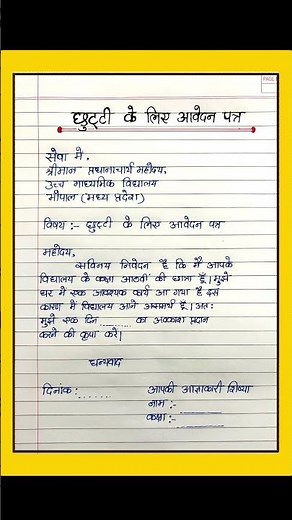 PAGE
छुट्टी के लिए आवेदन पत्र
सेवा में,
श्रीमान प्रधानाचार्य महोदय,
उच्च माध्यमिक विद्यालय
भोपाल (मध्य प्रदेश)
विषय :- छुट्टी के लिए आवेदन पत्र
महोदय,
सविनय निवेदन है कि मैं आपके
विद्यालय के कक्षा आठवीं की छात्रा हूँ। मुझे
घर में एक आवश्यक कार्य आ गया है इस
कारण मैं विद्यालय आने असमर्थ हूँ। अत:
मुझे एक दिन ........ का अवकाश प्रदान
करने की कृपा करें।
धन्यवाद
दिनांक : ......
आपकी आज्ञाकारी शिष्या
नाम :-
कक्षा :-